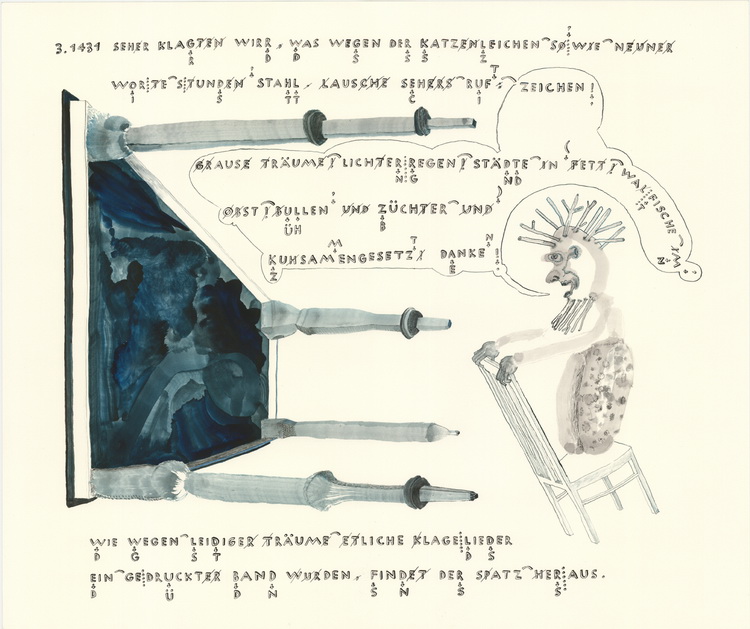 3.1431 SEHER KLAGTEN WIRR, WAS WEGEN DER KATZENLEICHEN SO WIE NEUNER
R D D S S S Z
T
WORTE STUNDEN STAHL, LAUSCHE SEHERS RUF ZEICHEN!
I S TT C I
GRAUSE TRÄUME! LICHTERREGEN! STÄDTE IN FETT! WALFISCHE IM
NG ND T N
OBST! BULLEN UND ZÜCHTER UND
ÜH B
M T N
KUHSAMENGESETZ! DANKE!
Z E
WIE WEGEN LEIDIGER TRÄUME ETLICHE KLAGELIEDER
D G S T D S
EIN GEDRUCKTER BAND WURDEN, FINDET DER SPATZ HERAUS.
B Ü D N S N S S